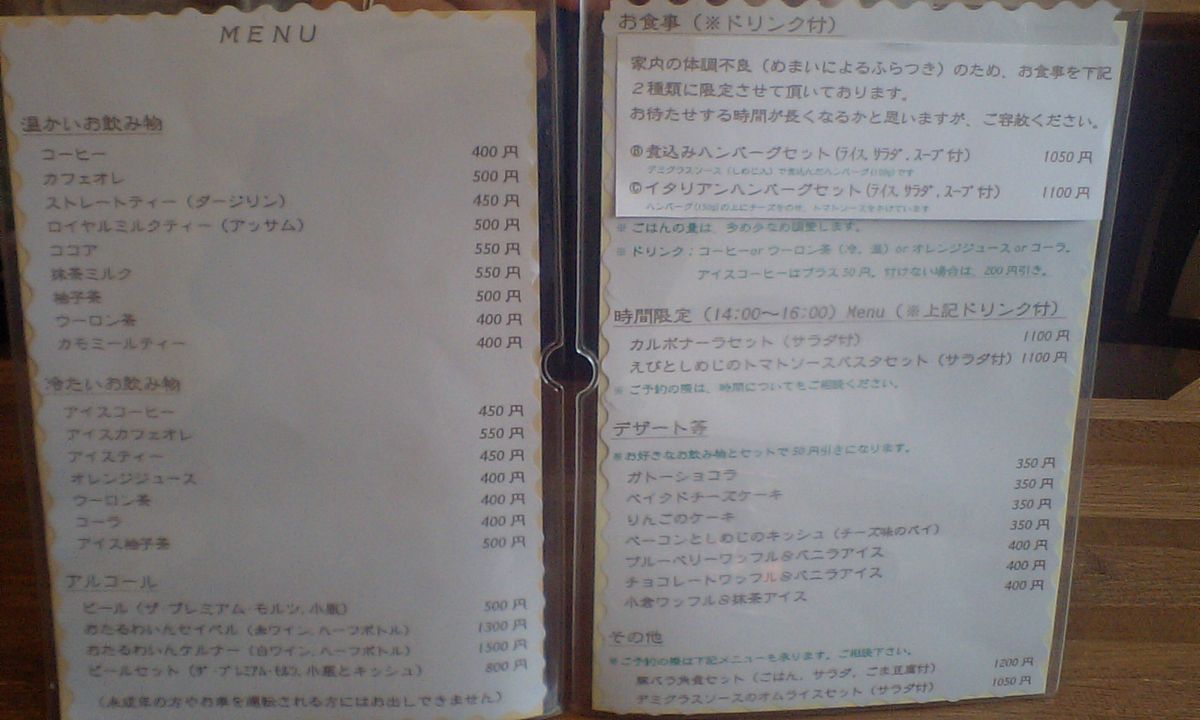 MENU
温かいお飲み物
コーヒー 400円
カフェオレ 500円
ストレートティー（ダージリン） 450円
ロイヤルミルクティー（アッサム） 500円
ココア 550円
抹茶ミルク 550円
柚子茶 500円
ウーロン茶 400円
カモミールティー 400円
冷たいお飲み物
アイスコーヒー 450円
アイスカフェオレ 550円
アイスティー 450円
オレンジジュース 400円
ウーロン茶 400円
コーラ 400円
アイス柚子茶 500円
アルコール
ビール（ザ・プレミアム・モルツ、小瓶） 500円
おたるわいんセイベル（赤ワイン、ハーフボトル） 1300円
おたるわいんケルナー（白ワイン、ハーフボトル） 1500円
ビールセット（ザ・プレミアム・モルツ、小瓶とキッシュ） 800円
（未成年の方やお車を運転される方にはお出しできません）
お食事（※ドリンク付）
家内の体調不良（めまいによるふらつき）のため、お食事を下記
２種類に限定させて頂いております。
お待たせする時間が長くなるかと思いますが、ご容赦ください。
Ⓑ煮込みハンバーグセット（ライス、サラダ、スープ付） 1050円
デミグラスソース（しめじ入）で煮込んだハンバーグ(150g)です
Ⓒイタリアンハンバーグセット（ライス、サラダ、スープ付） 1100円
ハンバーグ(150g)の上にチーズをのせ、トマトソースをかけています
※ごはんの量は、多め少なめ調整します。
※ドリンク：コーヒーorウーロン茶（冷、温）orオレンジジュースorコーラ。
アイスコーヒーはプラス50円。付けない場合は、200円引き。
時間限定（14:00〜16:00）Menu（※上記ドリンク付）
カルボナーラセット（サラダ付） 1100円
えびとしめじのトマトソースパスタセット（サラダ付） 1100円
※ご予約の際は、時間についてもご相談ください。
デザート等
※お好きなお飲み物とセットで50円引きになります。
ガトーショコラ 350円
ベイクドチーズケーキ 350円
りんごのケーキ 350円
ベーコンとしめじのキッシュ（チーズ味のパイ） 350円
ブルーベリーワッフル＆バニラアイス 400円
チョコレートワッフル＆バニラアイス 400円
小倉ワッフル＆抹茶アイス 400円
その他
※ご予約の際は下記メニューも承ります。ご相談下さい。
豚バラ角煮セット（ごはん、サラダ、ごま豆腐付） 1200円
デミグラスソースのオムライスセット（サラダ付） 1050円